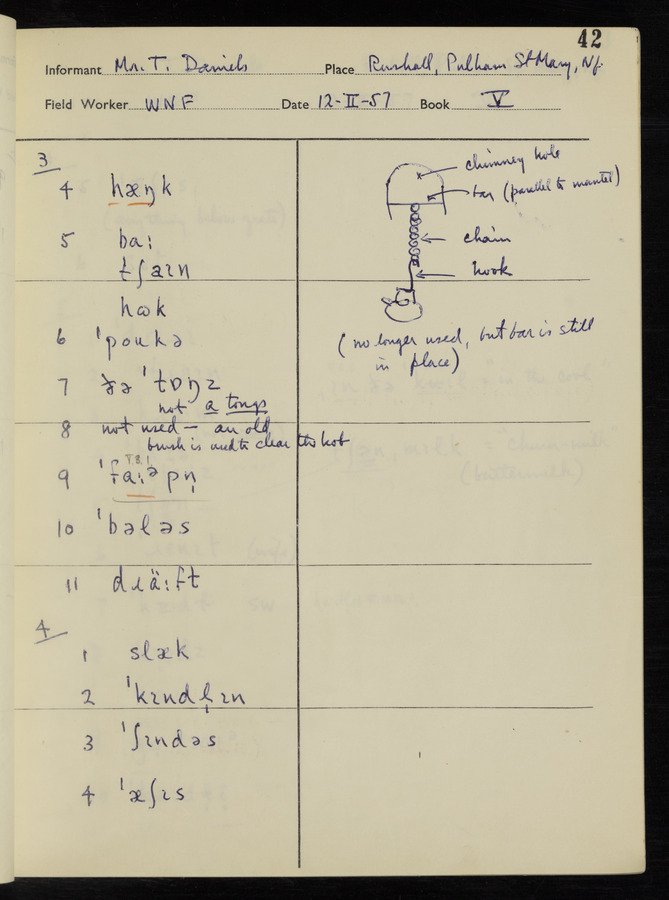 42
Informant Mr. T. Daniels Place Rushall, Pulham St Mary, Nf.
Field Worker WNF Date 12-II-57 Book V
3
4 hæŋk
5 ba:
tʃaɪn
hɷk
6 ˈpoukə
7 ðə ˈtɒŋz
not a tongs
8 not used – an old
brush is used to clear the hot
9 ˈfa:ᵊpn̩
10 ˈbələs
11 dɹä:ft
4
1 slæk
2 ˈkɪndl̩ɪn
3 ˈʃɪndəs
4 ˈæʃɪs
chimney hole
bar (parallel to mantel)
chain
hook
(no longer used, but bar is still
in place)